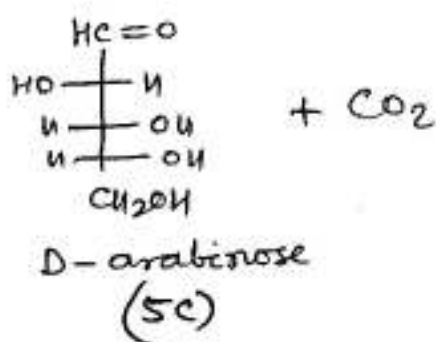 HC=O
HO H
H OH + CO2
H OH
CH2OH
D-arabinose
(5C)